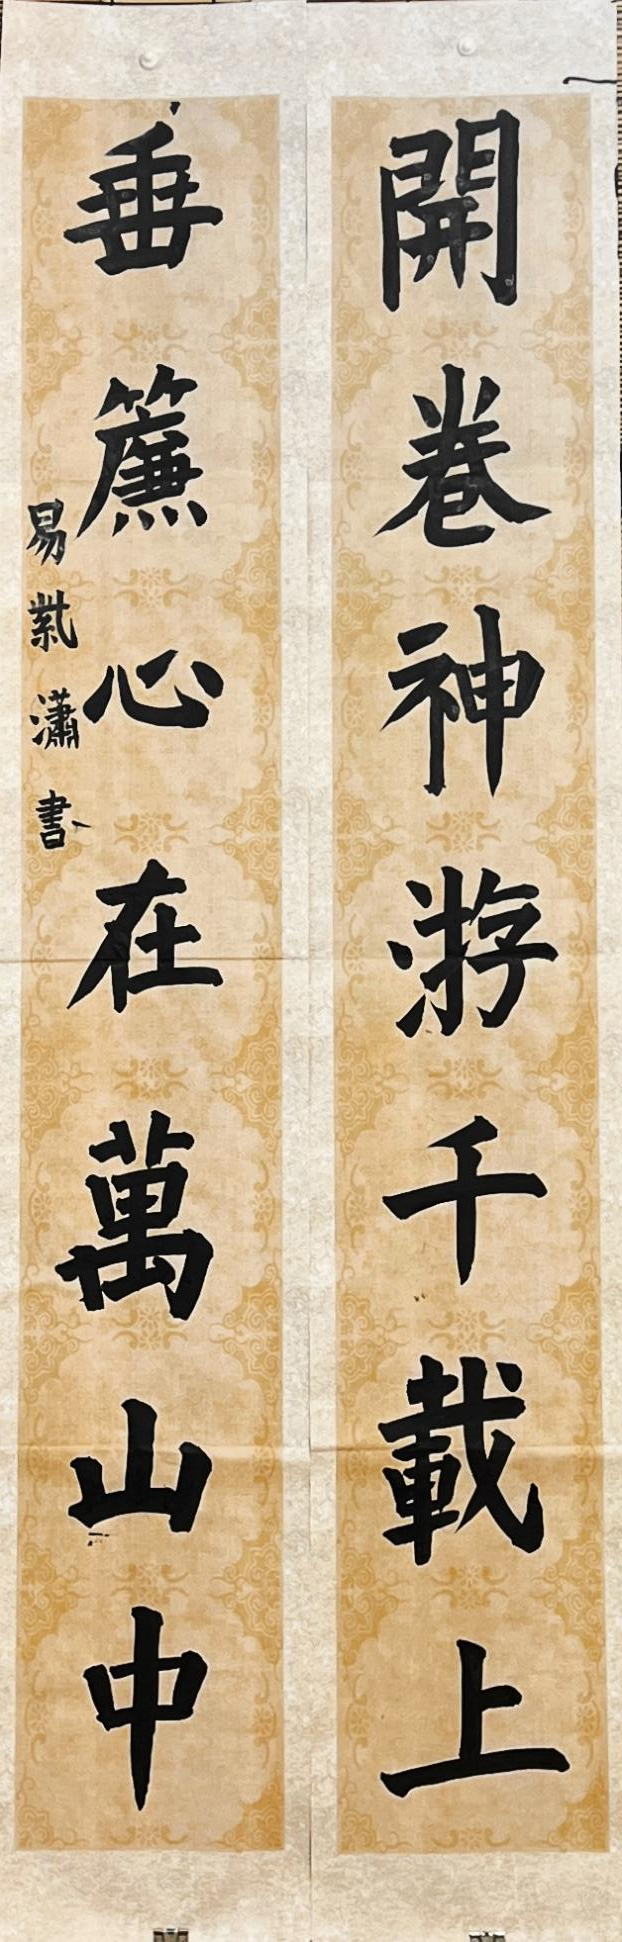 開卷神游千載上
垂簾心在萬山中
易紫瀟書